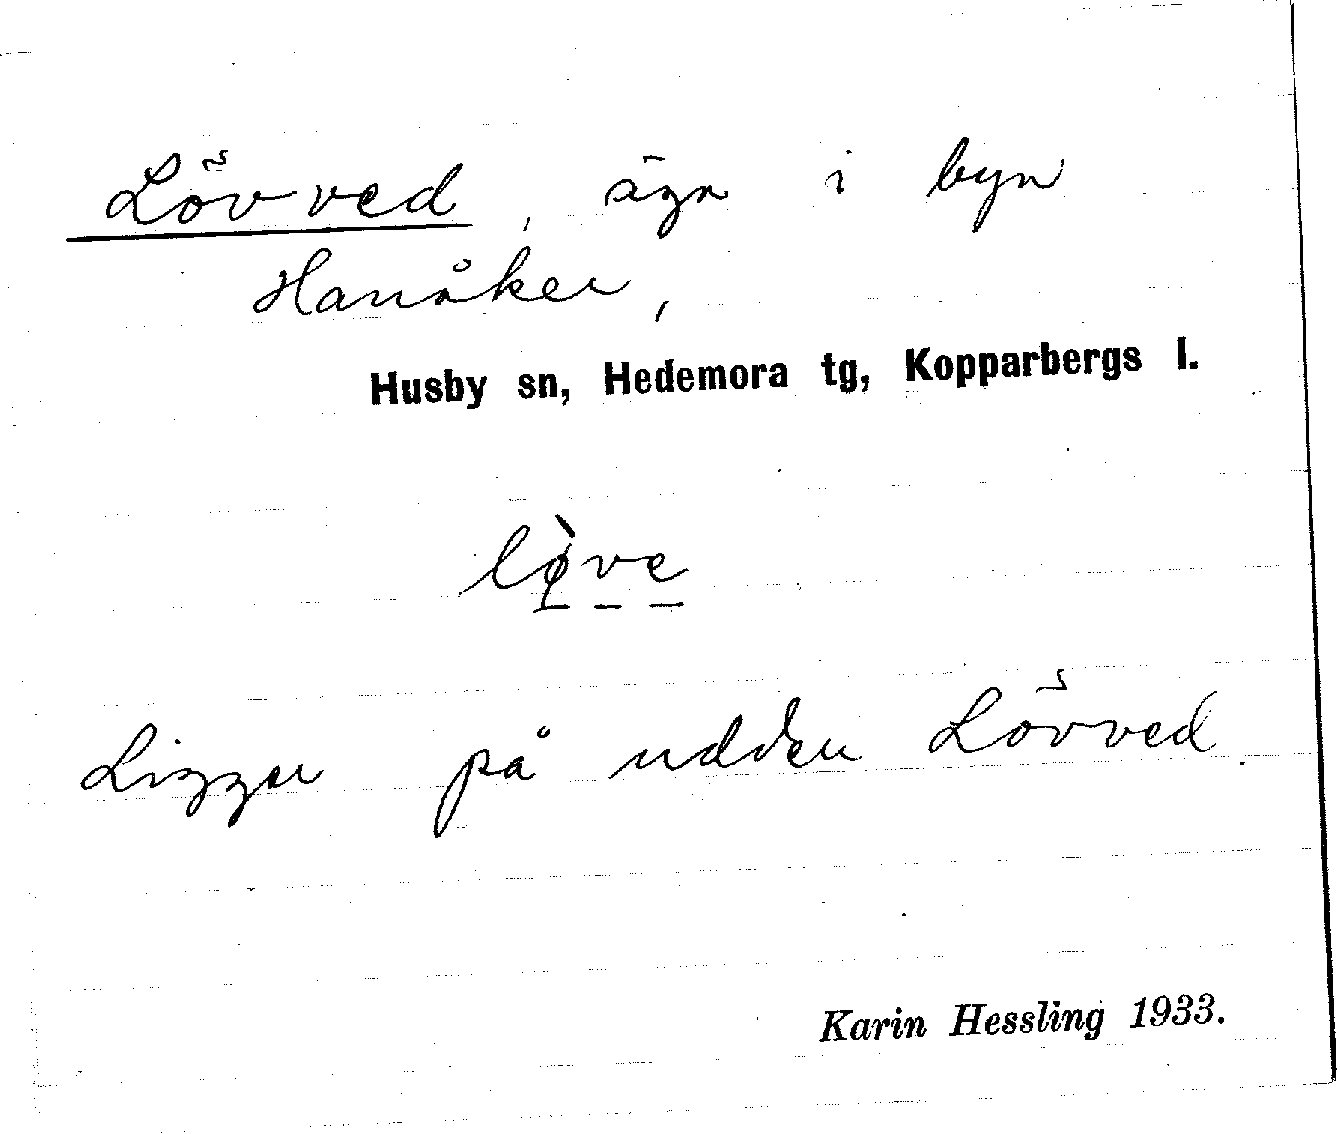 Lövved, ägn i byn
Hanåker,
Husby sn, Hedemora tg, Kopparbergs l.
lø̀ve
Ligger på udden Lövved.
Karin Hessling 1933.